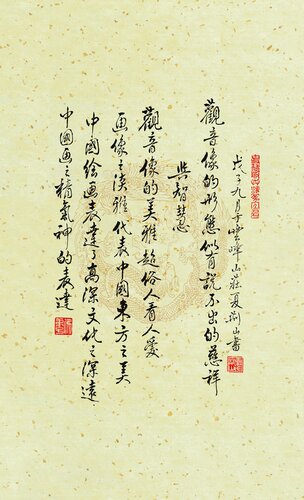 戊子九月于雲峰山莊夏荆山書
觀音像的形態似有説不出的慈祥
與智慧
觀音像的美雅超俗人看人愛
画像之淡雅代表中國東方之美
中國绘画表達了高深文化之深遠
中國画之精氣神的表達